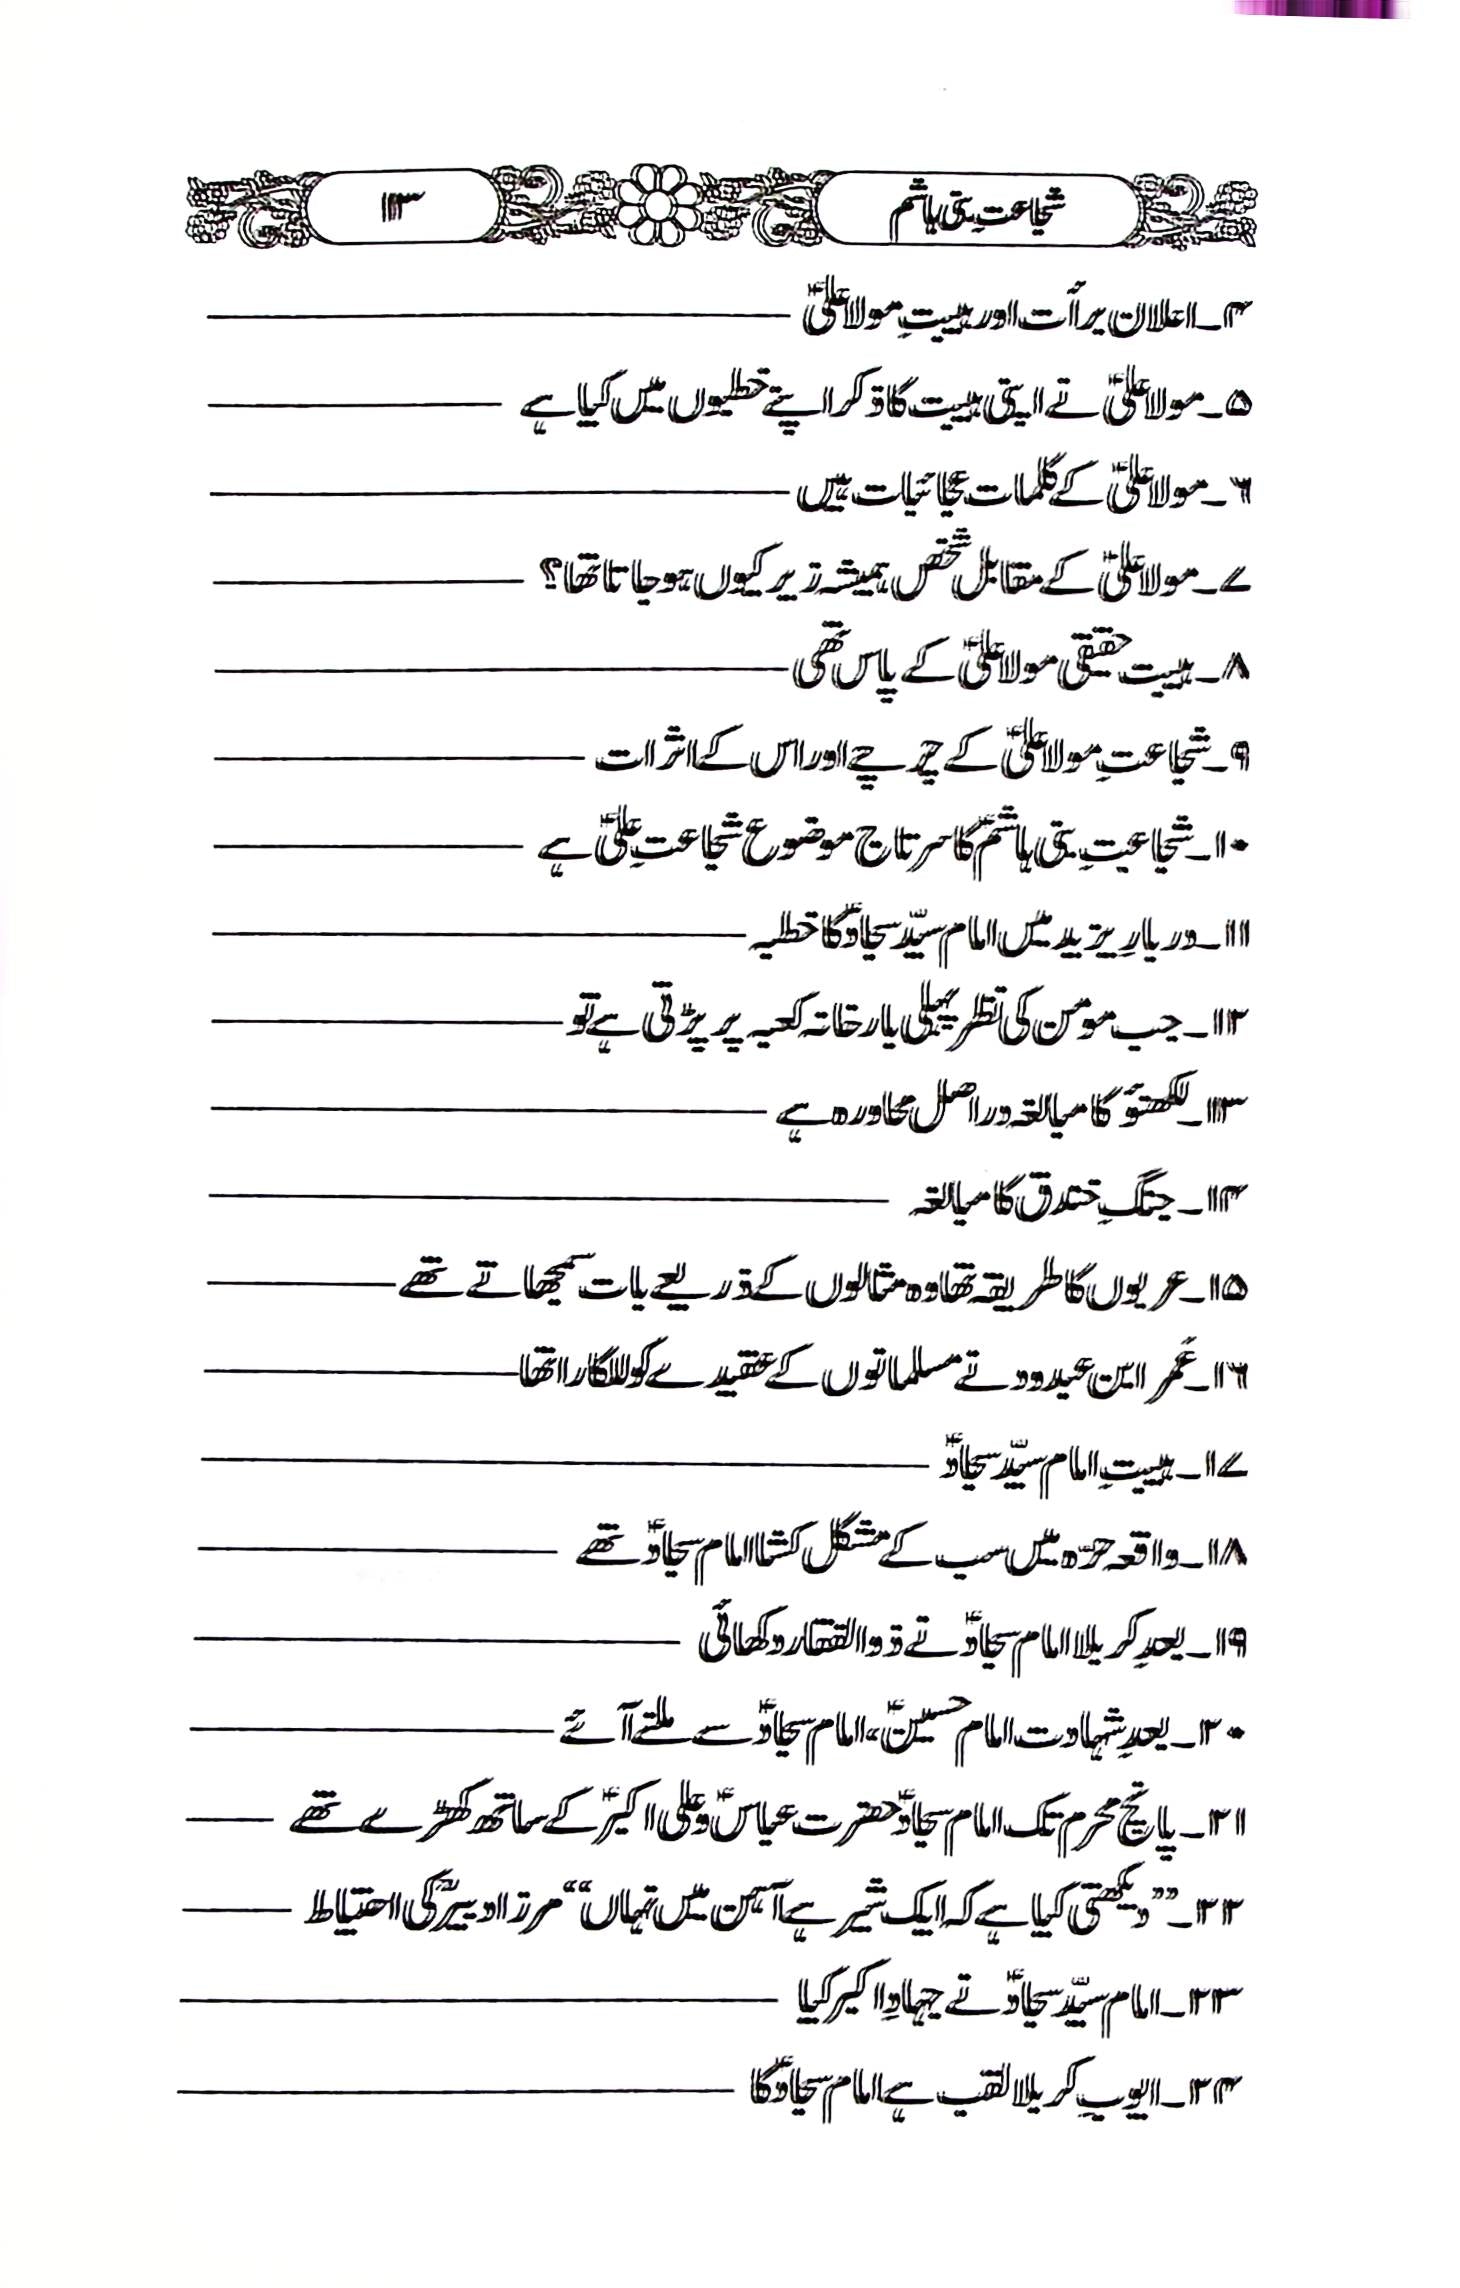 شجاعتِ بنی ہاشم ۱۳
۴۔ اعلان برأت اور ہیبتِ مولا علیؑ
۵۔ مولا علیؑ نے اپنی ہیبت کا ذکر اپنے خطبوں میں کیا ہے
۶۔ مولا علیؑ کے کلمات عجائبات ہیں
۷۔ مولا علیؑ کے مقابل شخص ہمیشہ زیر کیوں ہو جاتا تھا؟
۸۔ ہیبت حقیقی مولا علیؑ کے پاس تھی
۹۔ شجاعتِ مولا علیؑ کے چرچے اور اس کے اثرات
۱۰۔ شجاعتِ بنی ہاشمؑ کا سرتاج موضوع شجاعتِ علیؑ ہے
۱۱۔ دربارِ یزید میں امام سیّد سجادؑ کا خطبہ
۱۲۔ جب مومن کی نظر پہلی بار خانہ کعبہ پر پڑتی ہے تو
۱۳۔ لکھنؤ کا مبالغہ دراصل محاورہ ہے
۱۴۔ جنگِ خندق کا مبالغہ
۱۵۔ عربوں کا طریقہ تھا وہ مثالوں کے ذریعے بات سمجھاتے تھے
۱۶۔ عَمر ابن عبدود نے مسلمانوں کے عقیدے کو للکارا تھا
۱۷۔ ہیبتِ امام سیّد سجادؑ
۱۸۔ واقعہ حرّہ میں سب کے مشکل کشا امام سجادؑ تھے
۱۹۔ بعدِ کربلا امام سجادؑ نے ذوالفقار دکھائی
۲۰۔ بعدِ شہادت امام حسینؑ، امام سجادؑ سے ملنے آئے
۲۱۔ پانچ محرم تک امام سجادؑ حضرت عباسؑ و علی اکبرؑ کے ساتھ کھڑے تھے
۲۲۔ ”دیکھتی کیا ہے کہ ایک شیر ہے آہن میں نہاں“ مرزا دبیرؔ کی احتیاط
۲۳۔ امام سیّد سجادؑ نے جہادِ اکبر کیا
۲۴۔ ایوبِ کربلا لقب ہے امام سجادؑ کا